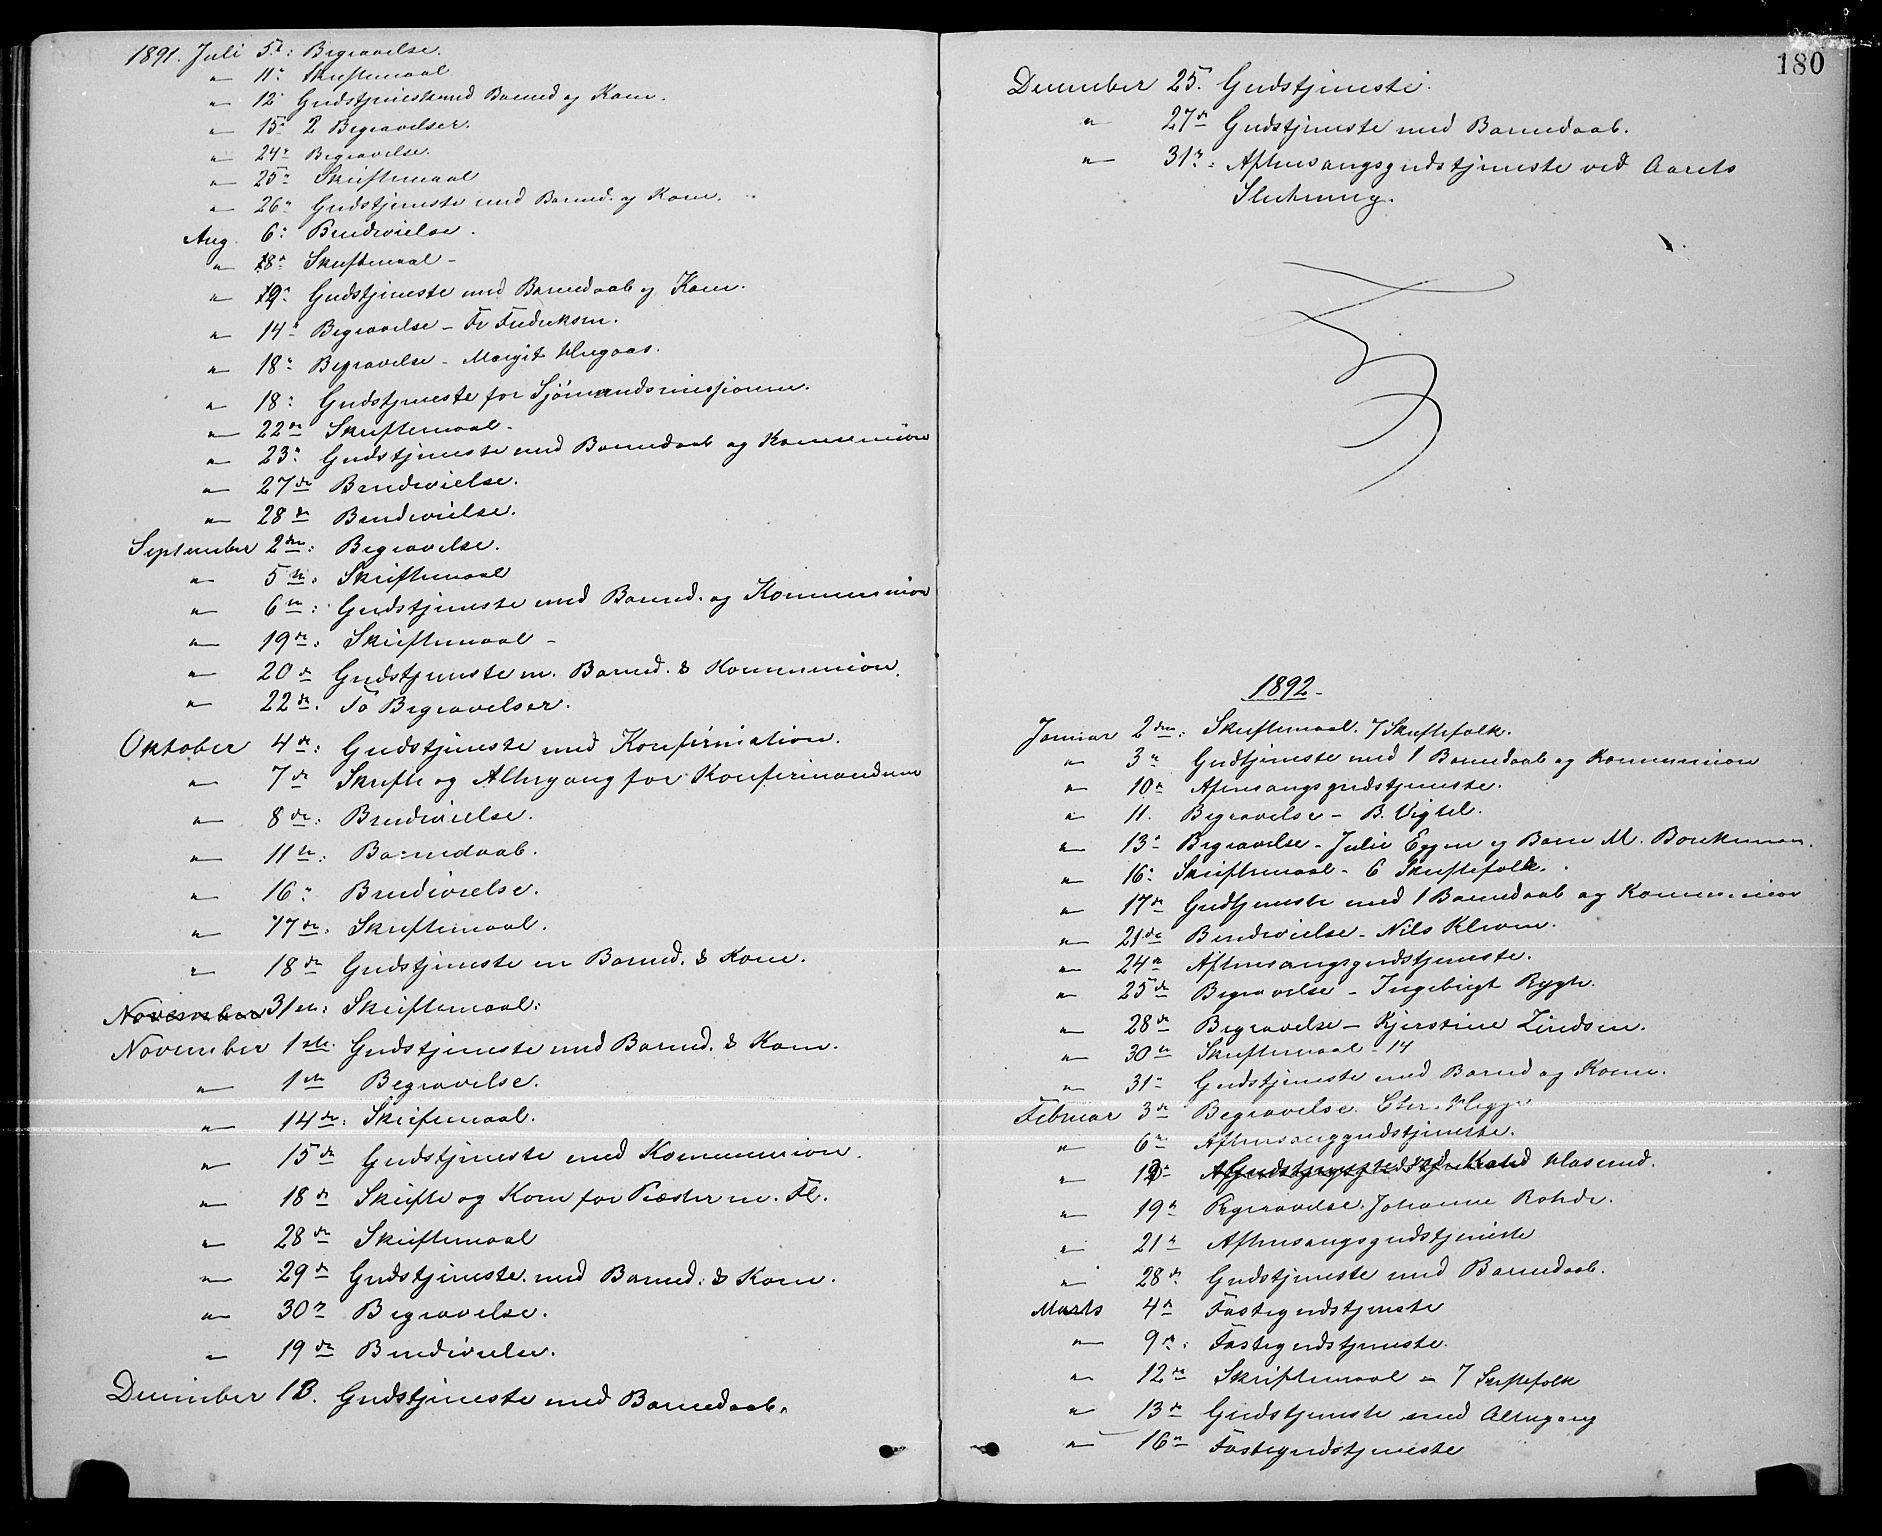 1891. Juli 5te: Begravelse.
" 11: Skriftemaal
" 12 Gudstjeneste med Barned og Kom.
" 15: 2 Begravelser.
" 24: Begravelse.
" 25: Skriftemaal
" 26: Gudstjeneste med Barned. og Kom.
Aug. 6: Brudevielse.
" 8: Skriftemaal -
" 9: Gudstjeneste med Barnedaab og Kom.
" 14: Begravelse - Fr Fredriksen.
" 18: Begravelse - Margit
" 18: Gudstjeneste for Sjömandsmissionen.
" 22de Skriftemaal -
" 23: Gudstjeneste med Barnedaab og Kommunion
" 27de Brudevielse.
" 28de Brudevielse.
September 2den: Begravelse.
" 5te: Skriftemaal
" 6te: Gudstjeneste med Barned. og Kommunion
" 19de: Skriftemaal -
" 20de Gudstjeneste m. Barned. & Kommunion.
" 22de. To Begravelser.
Oktober 4de: Gudstjeneste med Konfirmation.
" 7de Skrifte og Altergang for Konfirmanderne
" 8de: Brudevielse.
" 11te: Barnedaab.
" 16: Brudevielse.
" 17de: Skriftemaal.
" 18de Gudstjeneste m Barned. & Kom.
November 31te: Skriftemaal:
November 1ste. Gudstjeneste med Barned. & Kom.
" 1ste Begravelse.
" 14de: Skriftemaal.
" 15de Gudstjeneste med Kommunion.
" 18de Skrifte og Kom for Præster m. Fl.
" 28de Skriftemaal
" 29de Gudstjeneste. med Barned. & Kom.
" 30te Begravelse.
" 19de Brudevielse.
December 13. Gudstjeneste med Barnedaab.
180
December 25. Gudstjeneste.
" 27de Gudstjeneste med Barnedaab.
" 31te: Aftensangsgudstjeneste ved Aarets
Slutning.
1892 -
Januar 2den: Skriftemaal. 7 Skriftefolk.
" 3: Gudtjeneste med 1 Barnedaab og Kommunion
" 10de Aftensangsgudstjeneste.
" 11. Begravelse - B. Vigtel.
" 13: Begravelse - Julie Eggen og Barn M.
" 16: Skriftemaal - 6 Skriftefolk.
" 17de Gudtjeneste med 1 Barnedaab og Kommunion
" 21de Brudevielse - Nils
" 24de Aftensangsgudstjeneste.
" 25de Begravelse - Ingebrigt Rygh.
" 28de Begravelse - Kjerstine Lindsen.
" 30te Skriftemaal - 14
" 31: Gudstjeneste med Barned og Kom.
Februar 3de Begravelse.
" 6te Aftensanggudstjeneste.
" 12
" 19de Begravelse. Johanne Rohde.
" 21de Aftensangsgudstjeneste
" 28de Gudstjeneste med Barnedaab.
Marts 4de Fastegudstjeneste
" 9de: Fastegudstjeneste.
" 12te Skriftemaal - 7 Skriftefolk
" 13de Gudstjeneste med Altergang
" 16de Fastegudstjeneste